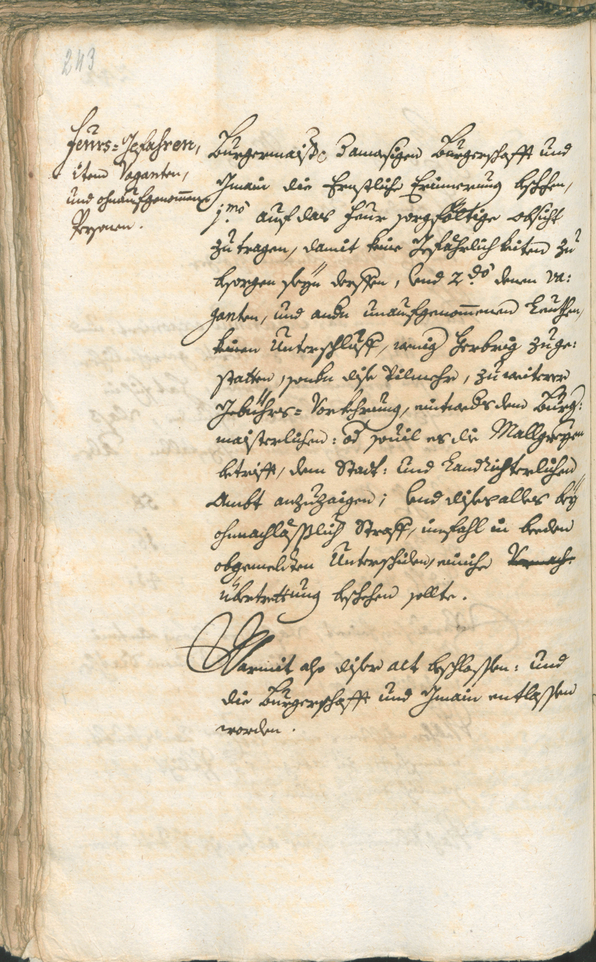 243
Feurs=Gefahren,
item Vaganten,
und ohnaufgenommene
Personen.
Burgermaister damasigen Burgerschafft und
Gmain die Ernstliche Erinnerung beschehen,
1.mo auf das Feur sorgfältige obsicht
zu tragen, damit keine Gefährlichkeiten zu
besorgen seyn derffen, und 2.do denen Va:
ganten, und andern unaufgenommenen Leuthen,
keinen Unterschluff, wenig Herbrig zuge:
statten, sondern dise vilmehr, zu weiterer
Gebührs=Vorkehrung, eintweders dem Burger:
maisterlichen: od souil es die
betrifft, dem Statt: und Landtrichterlichen
Ambt anzuzaigen; und dises alles bey
ohnnachlässlich Straff, imfahl in beeden
obgemelten Unterschiden, einiche
übertrettung beschehen sollte.
Warmit also diser act beschlossen: und
die Burgerschafft und Gmain entlassen
worden.